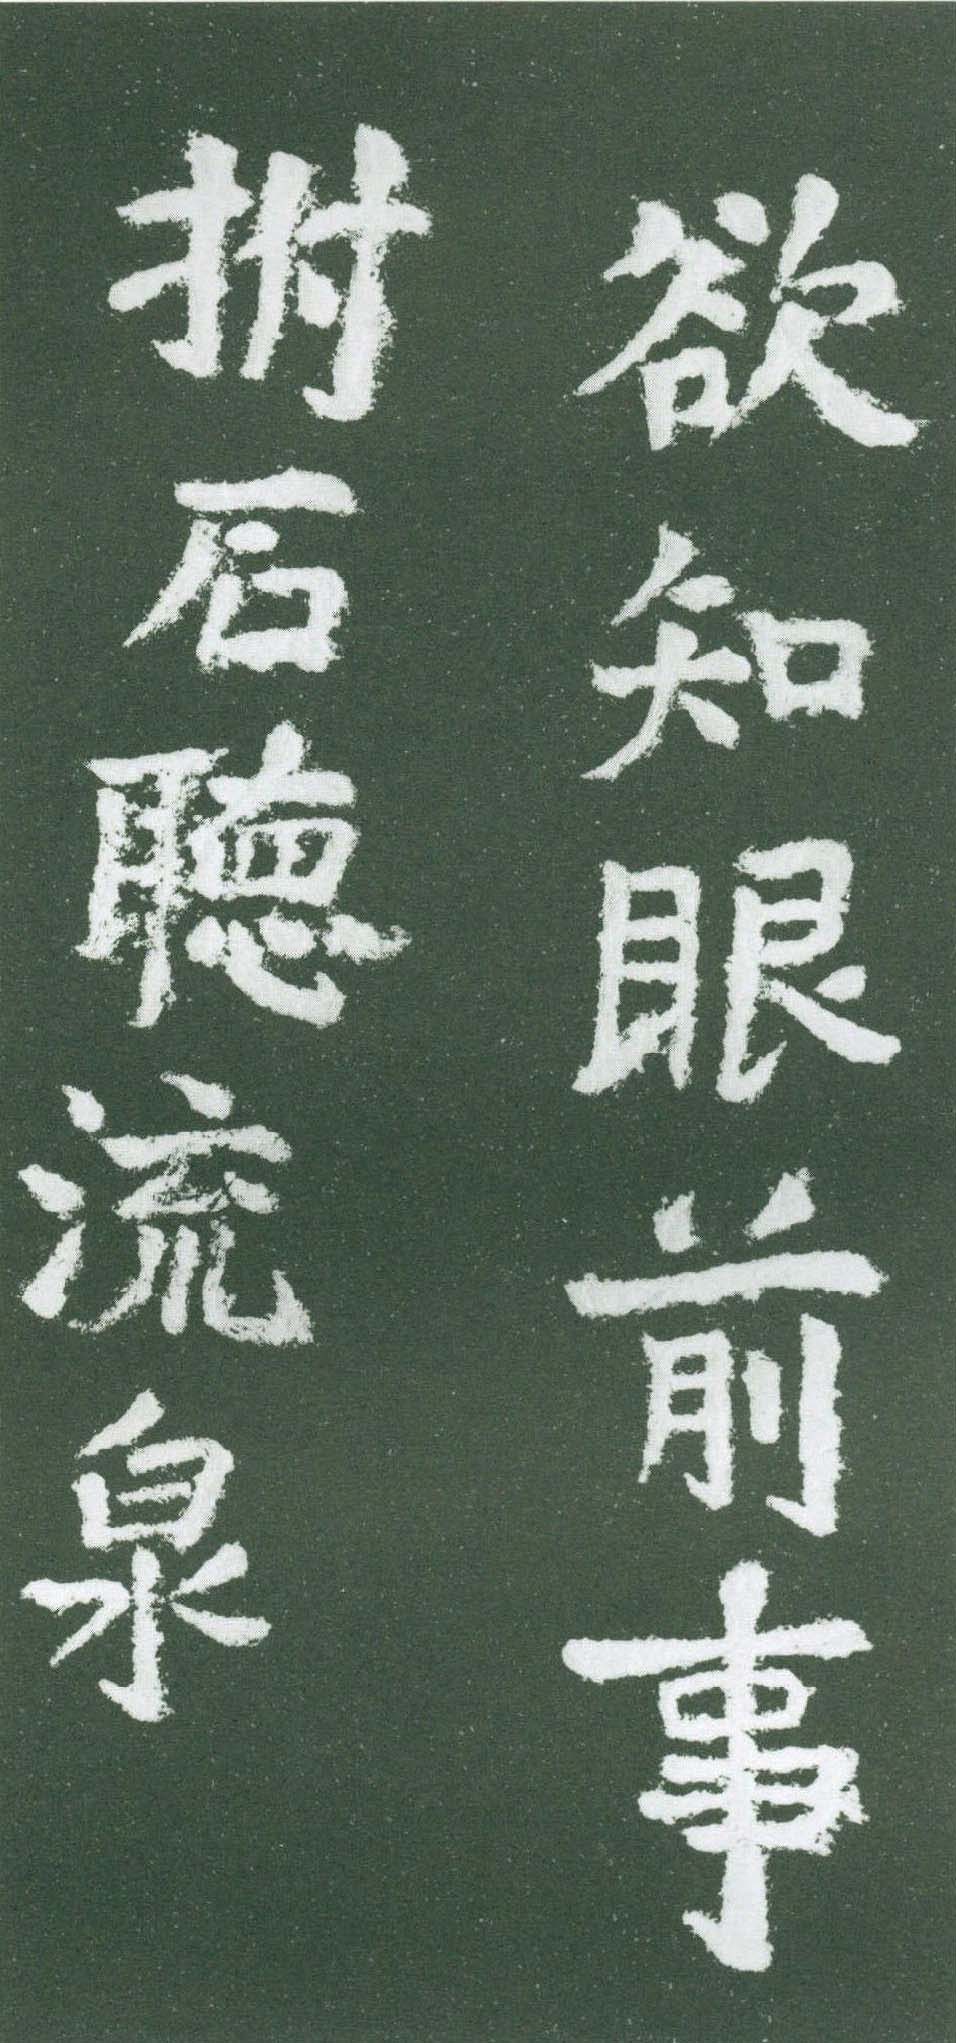 欲知眼前事
拊石聽流泉